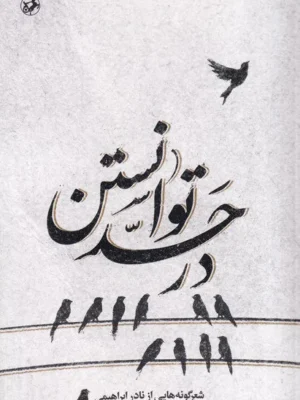 در حدّ توانستن
شعرگونه‌هایی از نادر ابراهیمی